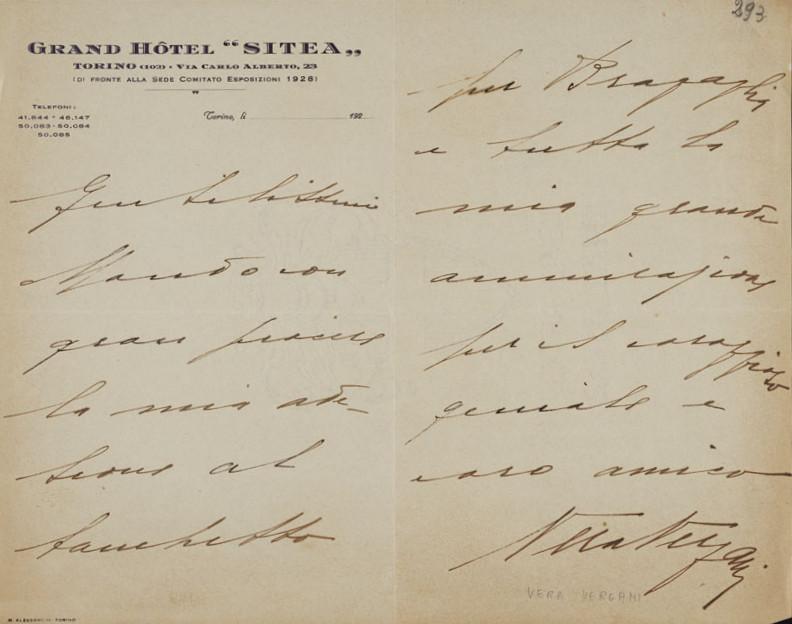 GRAND HÔTEL “SITEA„
TORINO (102) • VIA CARLO ALBERTO, 23
(DI FRONTE ALLA SEDE COMITATO ESPOSIZIONI 1928)
TELEFONI:
41,844 - 46,147
50,083 - 50,084
50,085
Torino, li 192
Gentilissimi
Mando con
gran piacere
la mia ade-
sione al
banchetto
293
per Bragaglia
e tutta la
mia grande
ammirazione
per il coraggioso
geniale e
caro amico
Vera Vergani
VERA VERGANI